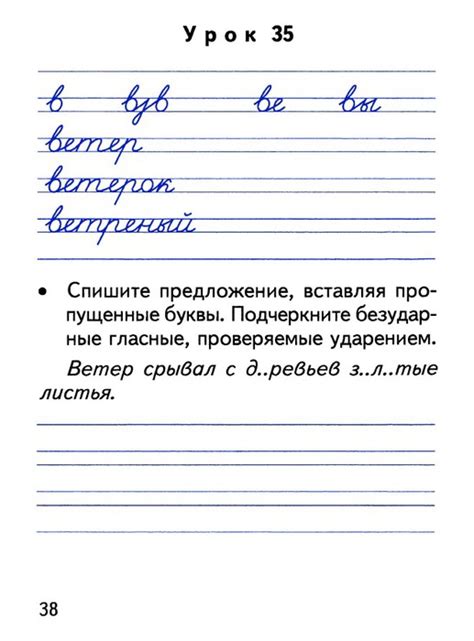 Урок 35
в взв ве вы
ветер
ветерок
ветреный
• Спишите предложение, вставляя про-
пущенные буквы. Подчеркните безудар-
ные гласные, проверяемые ударением.
Ветер срывал с д..ревьев з..л..тые
листья.
38